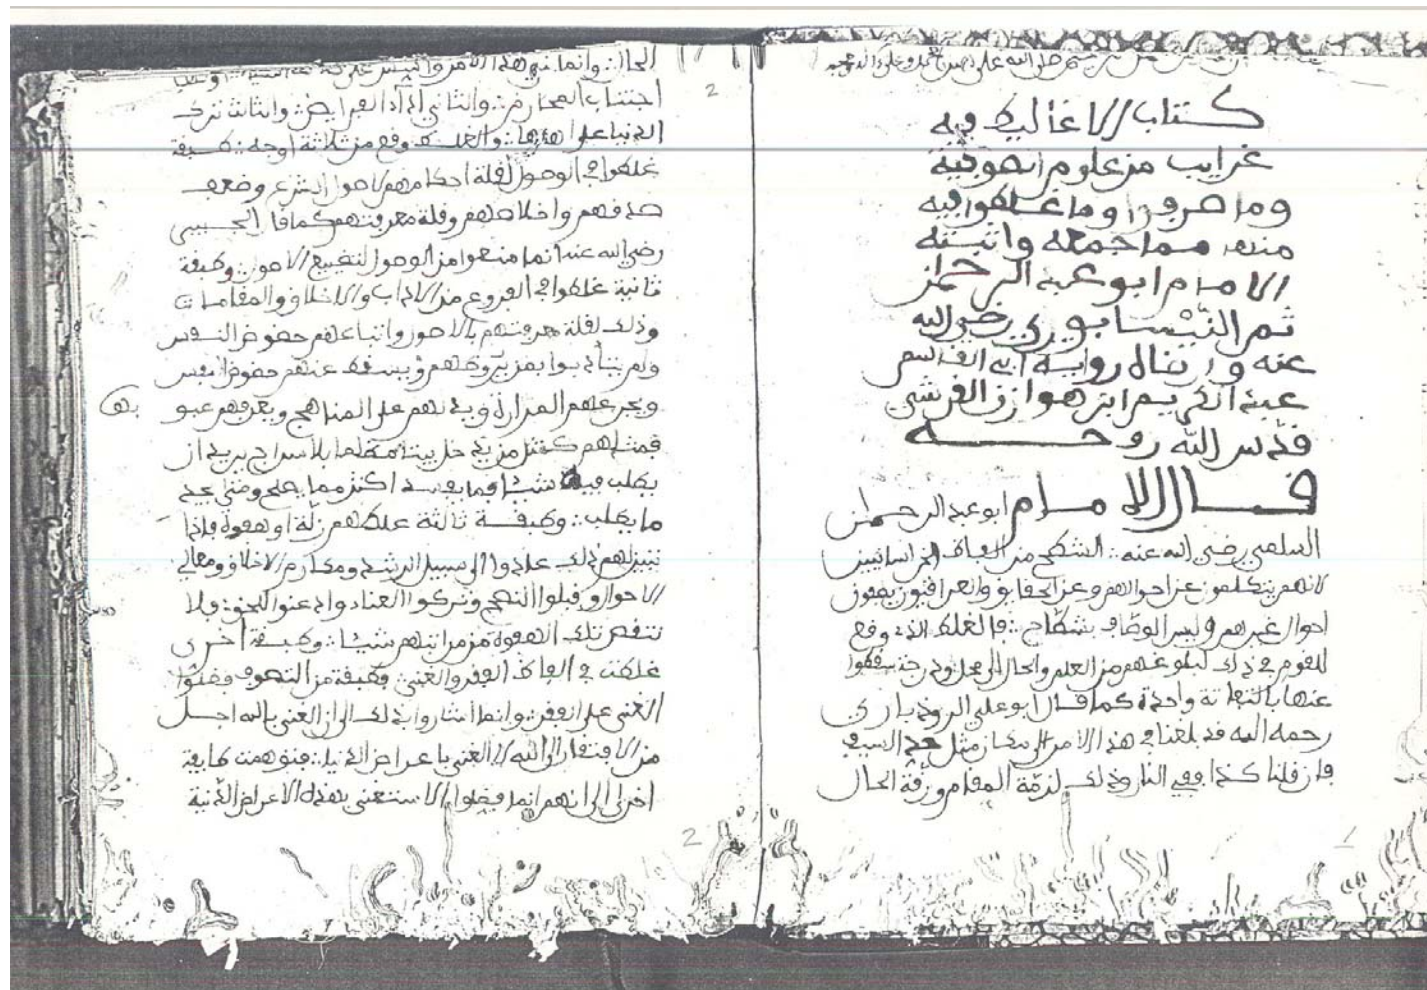 كتاب الاغاليط فيه
غرايب من علوم الصوفية
وما صرفوا وما غلطوا فيه
منه مما جمعه واثبته
الامام ابو عبد الرحمان
ثم النيسابوري رضي الله
عنه وارضاه رواية ابي القاسم
عبد الكريم ابن هوازن القرشي
قدس الله روحه
قال الامام ابو عبد الرحمان
السلمي رضي الله عنه الشطح من الخراسانيين
لانهم يتكلمون عن احوالهم وعن الحقايق والعراقيون يصفون
احوال غيرهم وليس الوصّاف بشطّاح فالغلط الذي وقع
للقوم في ذلك لبلوغهم من العلم والحال الى محل ودرجة سقطوا
عنها بالتفاتة واحدة كما قال ابو علي الروذباري
رحمه الله قد بلغنا في هذا الامر الى مكان مثل حد السيف
فان قلنا كذا ففي النار وذلك لدقّة المقام ورقة الحال
الحال وانما بني هذا الامر
اجتناب المحارم والثاني اداء الفرايض والثالث ترك
الدنيا على اهلها والغلط وقع من ثلاثة اوجه طبقة
غلطوا في الوصول لقلة احكامهم لاصول الشرع وضعف
صدقهم واخلاصهم وقلة معرفتهم كما قال الجنيد
رضي الله عنه انما منعوا من الوصول لتضييع الاصول وطبقة
ثانية غلطوا في الفروع من الاداب والاخلاق والمقامات
وذلك لقلة معرفتهم بالاصول واتباعهم حضوض النفس
ولم يتأدبوا بمن يروضهم ويسقط عنهم حضوض النفس
ويجرعهم المرارة ويدلهم على المناهج ويعرفهم عيو
بها
فمثلهم كمثل من يدخل بيتا مظلما بلا سراج يريد ان
يطلب فيه شيئا فما يفسد اكثر مما يصلح ومتى يجد
ما يطلب وطبقة ثالثة غلطهم زلّة او هفوة فاذا
تبين لهم ذلك عادوا الى سبيل الرشد ومكارم الاخلاق ومعالي
الاحوال وقبلوا النصح وتركوا العناد واذعنوا للحق ولا
تنقص تلك الهفوة من مراتبهم شيئا وطبقة اخرى
غلطت في الفقر والغنى فطبقة من التصوف فضلوا
الغنى على الفقر وانما اشاروا بذلك الى ان الغنى بالله اجل
من الافتقار الى الله لا الغنى باعراض الدنيا فتوهمت طايفة
اخرى انهم انما فضلوا الاستغنى بهذه الاعراض الدنية
2
2
1